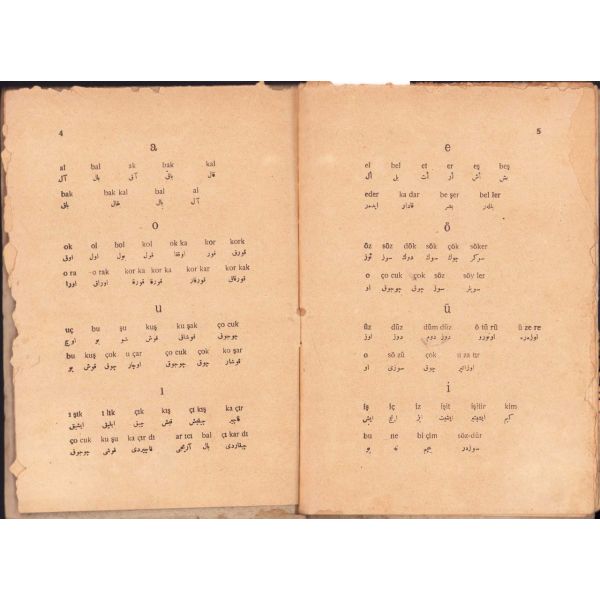 4
a
al bal ak bak kal
آل بال آق باق قال
bak bak kal bal al
باق بقال بال آل
o
ok ol bol kol ok ka kor kork
اوق اول بول قول اوققا قور قورق
o ra o rak kor ka kor ka kor kar kor kak
اورا اوراق قورقا قورقا قورقار قورقاق
u
uç bu şu kuş ku şak ço cuk
اوچ بو شو قوش قوشاق چوجوق
bu kuş çok u çar ço cuk ko şar
بو قوش چوق اوچار چوجوق قوشار
ı
ı şık ı lık çık kış çı kış ka çır
ایشیق ایلیق چیق قیش چیقیش قاچیر
ço cuk ku şu ka çır dı ar ıcı bal çı kar dı
چوجوق قوشی قاچیردی بال چیقاردی
5
e
el bel et er eş beş
ال بل ات ار اش بش
eder ka dar be şer bel ler
ایدەر قادار بشر بللر
ö
öz söz dök sök çök söker
اوز سوز دوك سوك چوك سوكر
o ço cuk çok söz söy ler
او چوجوق چوق سوز سویلر
ü
üz düz düm düz ö tü rü ü ze re
اوز دوز دوم دوز اوتورو اوزەرە
o sö zü çok u za tır
او سوزی چوق اوزاتیر
i
iş iç iz işit işitir kim
ایش ایچ ایز ایشیت ایشیتیر کیم
bu ne bi çim söz-dür
بو نە بیچیم سوزدر